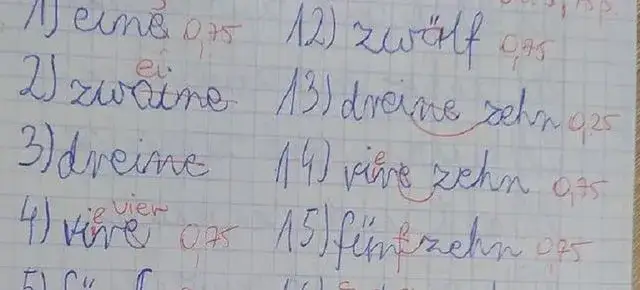 1) eine 0,75
2) zwaine ei
3) dreine
4) vire e vier 0,75
12) zwölf 0,75
13) dreine zehn 0,25
14) vine e zehn 0,75
15) fünf zehn 0,75